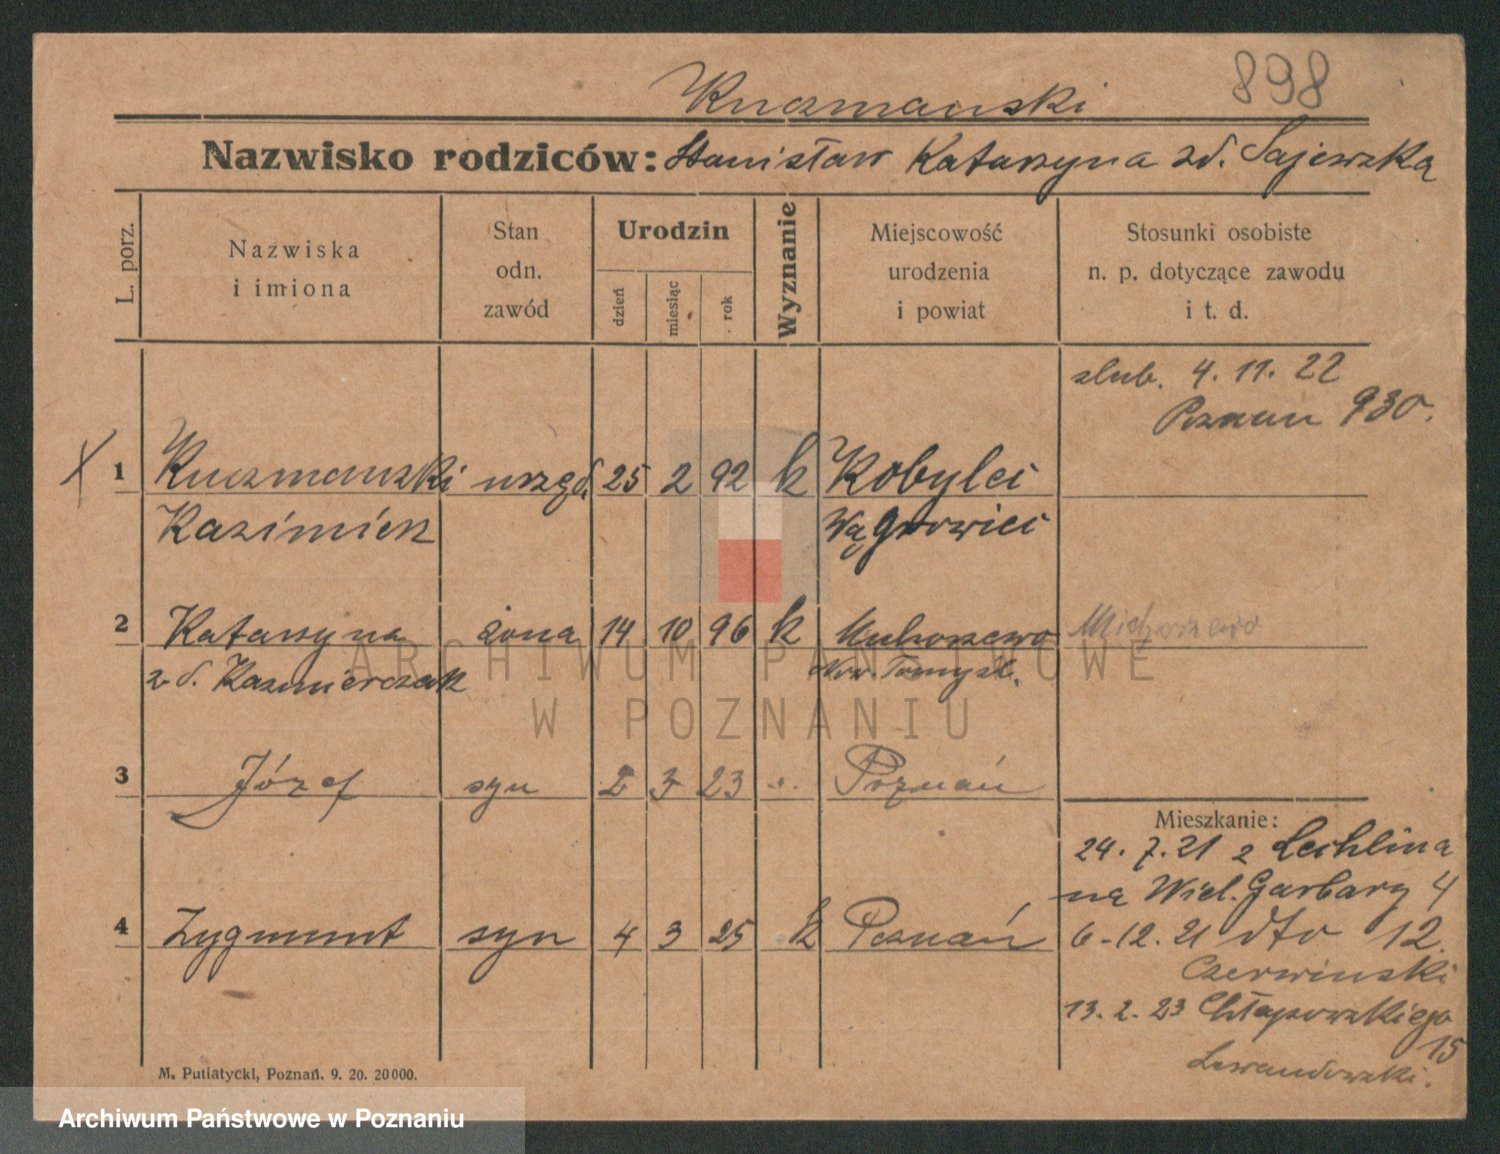 898
Kuczmanski
Nazwisko rodziców: Stanisław Katarzyna zd. Sajewska
L. porz.
Nazwiska
i imiona
Stan
odn.
zawód
Urodzin
dzień
miesiąc
rok
Wyznanie
Miejscowość
urodzenia
i powiat
Stosunki osobiste
n. p. dotyczące zawodu
i t. d.
slub. 4. 11. 22
Poznan 930.
1 Kuczmanski urzęd. 25 2 92 k Kobylec
Kazimierz Wągrowiec
2 Katarzyna żona 14 10 96 k
z d. Kazmierczak Now. Tomysl.
3 Józef syn 2 3 23 Poznań
Mieszkanie:
24. 7. 21 z Lechlina
na Wiel. Garbary 4
4 Zygmunt syn 4 3 25 k Poznań
6-12. 21 dto 12.
Czerwinski
13. 2. 23 Chłapowskiego
15
Lewandowski.
M. Putiatycki, Poznań. 9. 20. 20000.
ARCHIWUM PAŃSTWOWE
W POZNANIU
Archiwum Państwowe w Poznaniu